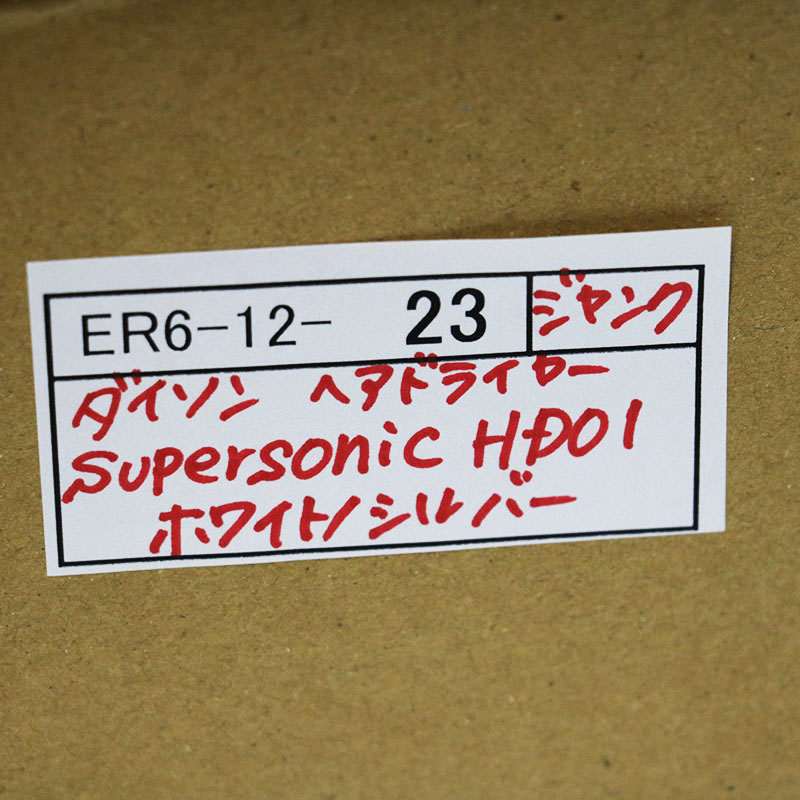 ER6-12- 23 ジャンク
ダイソン ヘアドライヤー
Supersonic HD01
ホワイト/シルバー